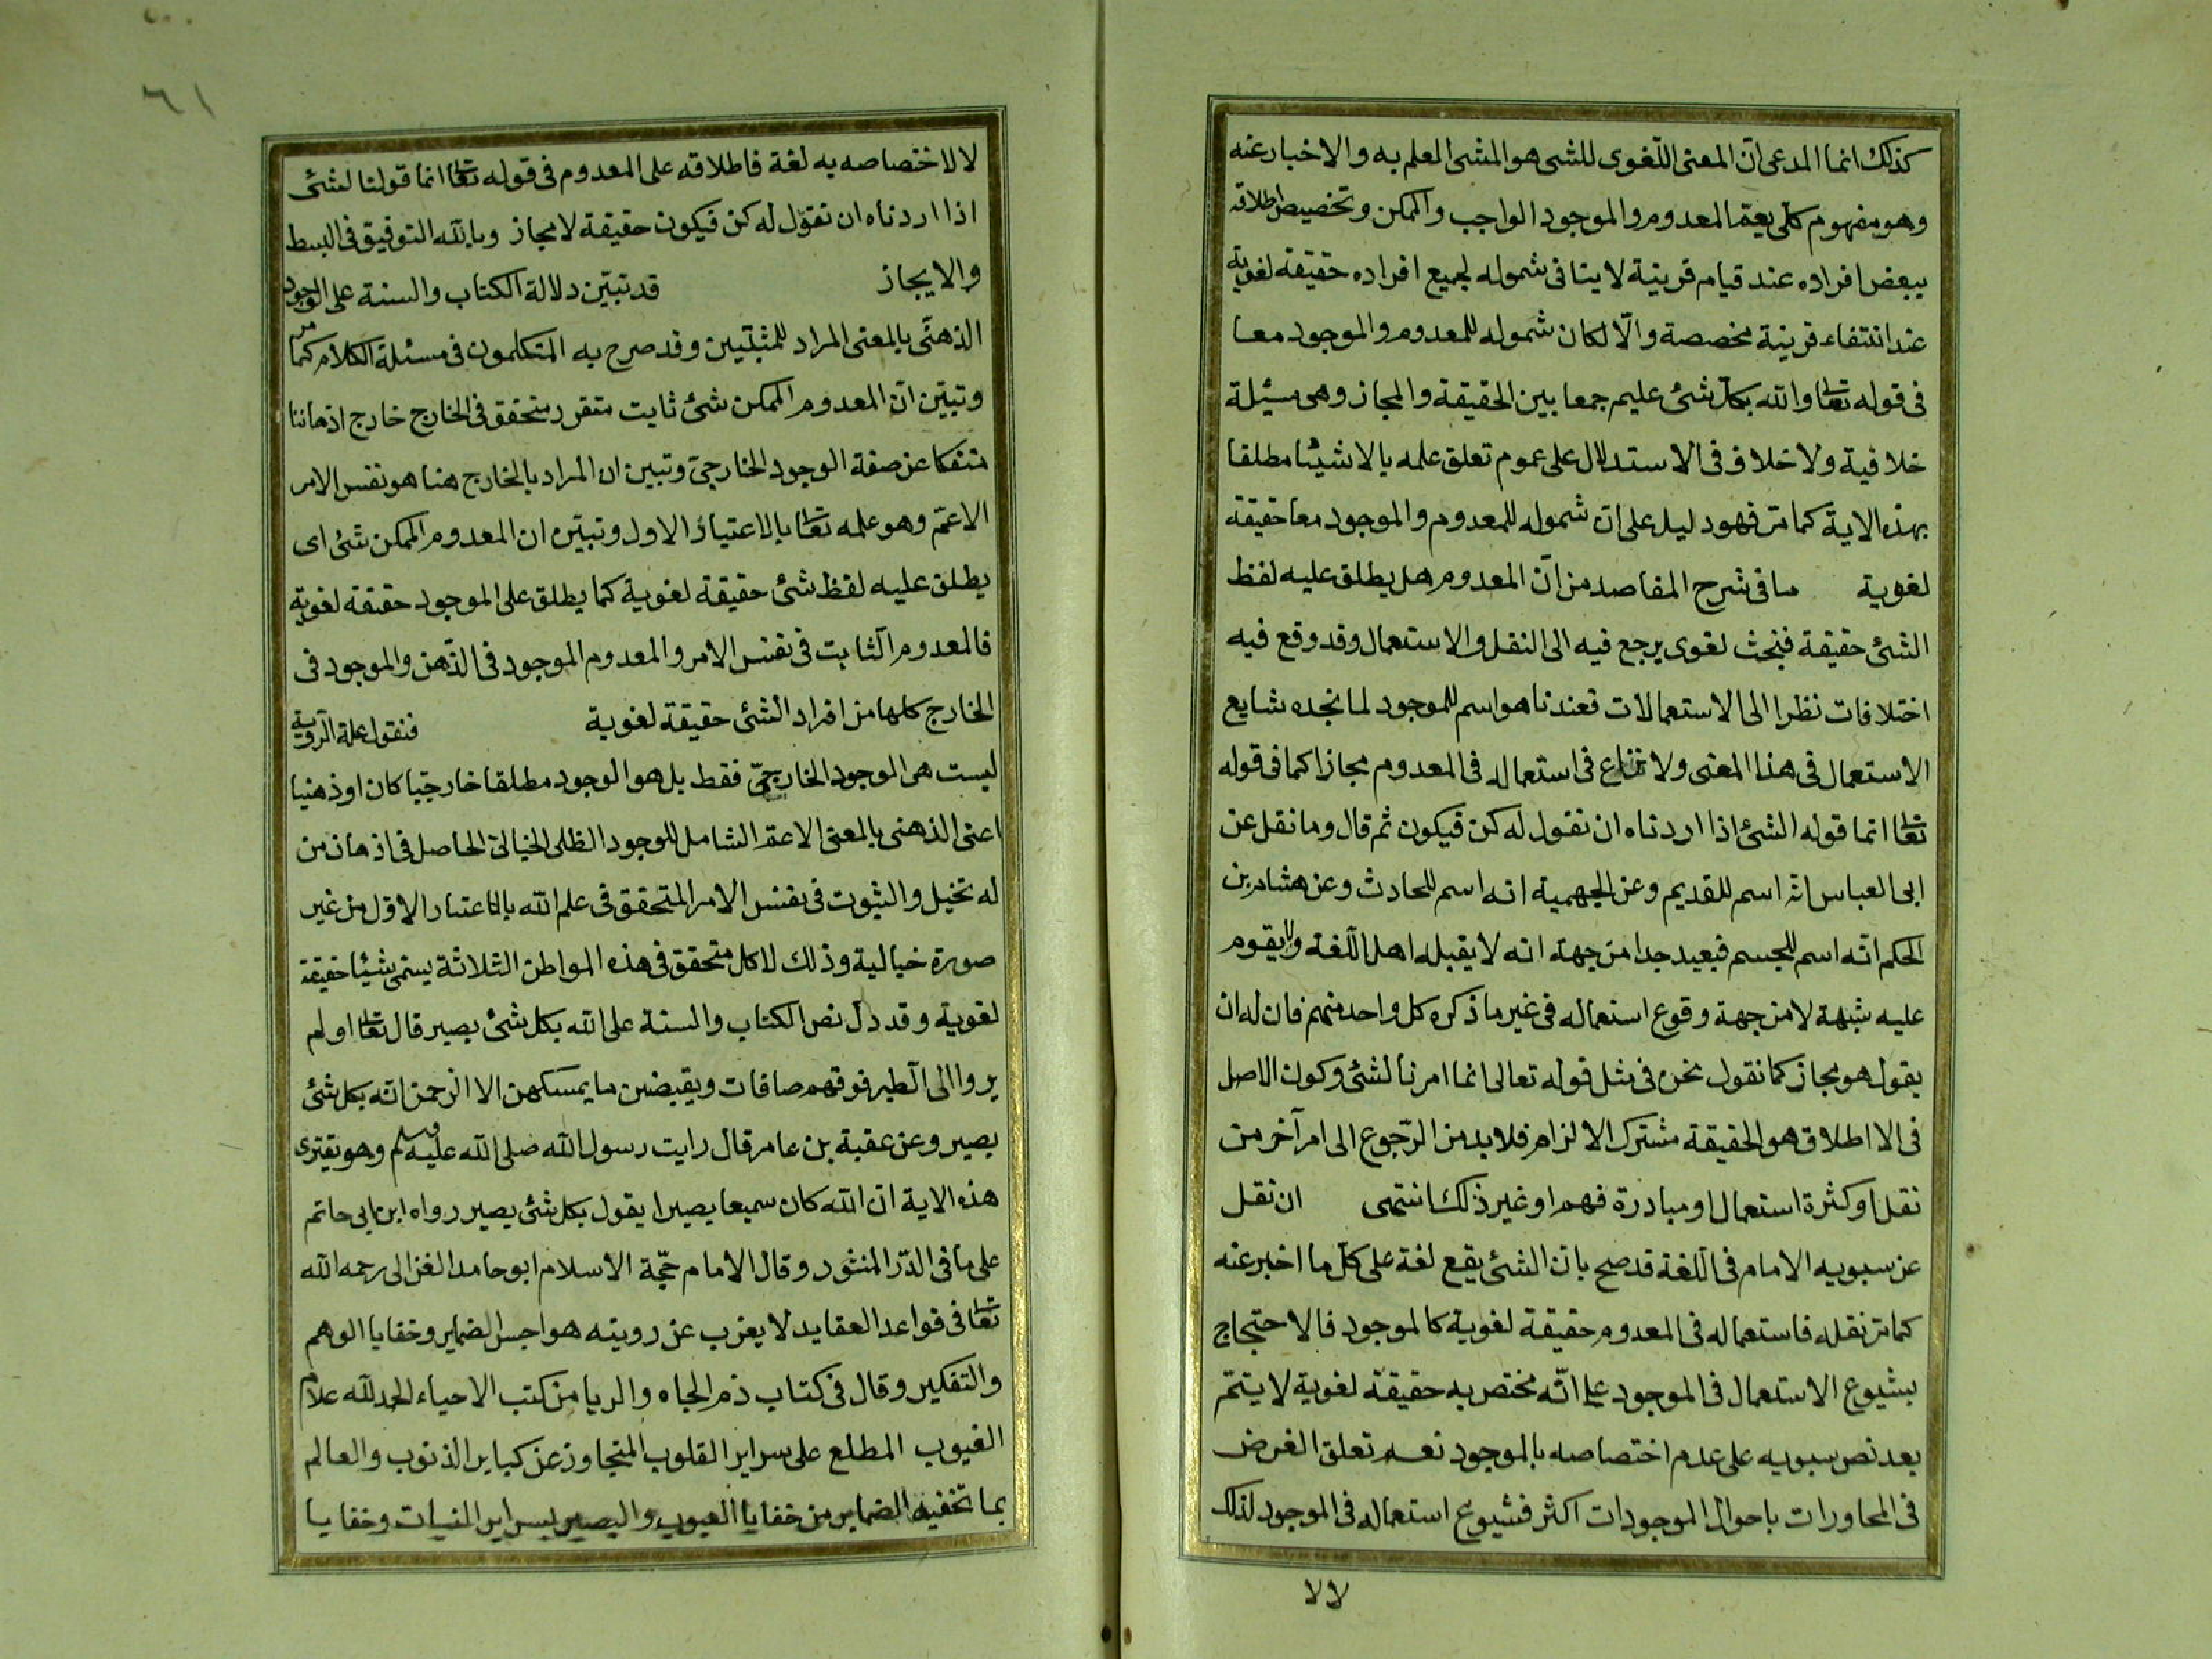 كذلك انما المدعى ان المعنى اللغوى للشى هو المشئ المعلم به والاخبار عنه
وهو مفهوم كلى يعم المعدوم والموجود الواجب والممكن وتخصيص اطلاقه
ببعض افراده عند قيام قرينية لا ينافى شموله لجميع افراده حقيقة لغوية
عند انتفاء قرينة مخصصة والّا لكان شموله للمعدوم والموجود معا
فى قوله تعا والله بكل شئ عليم جمعا بين الحقيقة والمجاز وهى مسئلة
خلافية ولا خلاف فى الاستدلال على عموم تعلق علمه بالاشيئا مطلقا
بهذه الاية كما مر فهو دليل على ان شموله للمعدوم والموجود معا حقيقة
لغوية ما فى شرح المقاصد من ان المعدوم هل يطلق عليه لفظ
الشئ حقيقة فبحث لغوى يرجع فيه الى النقل والاستعمال وقد وقع فيه
اختلافات نظرا الى الاستعمالات فعندنا هو اسم للموجود لما نجده شايع
الاستعمال فى هذا المعنى ولا نزاع فى استعماله فى المعدوم مجازا كما فى قوله
تعا انما قوله الشئ اذا اردناه ان نقول له كن فيكون ثم قال وما نقل عن
ابى العباس انه اسم للقديم وعن الجهمية انه اسم للحادث وعن هشام بن
الحكم انه اسم للجسم فبعيد جدا من جهة انه لا يقبله اهل اللغة ولا يقوم
عليه شبهة لا من جهة وقوع استعماله فى غير ما ذكره كل واحد منهم فان له ان
يقول هو مجاز كما نقول نحن فى مثل قوله تعالى انما امرنا لشئ وكون الاصل
فى الااطلاق هو الحقيقة مشترك الالزام فلا بد من الرجوع الى امر آخر من
نقل او كثرة استعمال او مبادرة فهم او غير ذلك انتهى ان نقل
عن سبويه الامام فى اللغة قد صح بان الشئ يقع لغة على كل ما اخبر عنه
كما مر نقله فاستعماله فى المعدوم حقيقة لغوية كالموجود فالاحتجاج
بشيوع الاستعمال فى الموجود على انه مختص به حقيقة لغوية لا يتم
بعد نص سبويه على عدم اختصاصه بالموجود نعم تعلق الغرض
فى المحاورات باحوال الموجودات اكثر فشيوع استعماله فى الموجود لذلك
لا لا
٦١
لا لاختصاصه به لغة فاطلاقه على المعدوم فى قوله تعا انما قولنا لشئ
اذا اردناه ان نقول له كن فيكون حقيقة لا مجاز وبالله التوفيق فى البسط
والايجاز قد تبين دلالة الكتاب والسنة على الوجود
الذهنى بالمعنى المراد للمثبتين وقد صرح به المتكلمون فى مسئلة الكلام كما مر
وتبين ان المعدوم الممكن شئ ثابت متقرر متحقق فى الخارج خارج اذهاننا
منفكا عن صفة الوجود الخارجى وتبين ان المراد بالخارج هنا هو نفس الامر
الاعم وهو علمه تعا بالاعتبار الاول وتبين ان المعدوم الممكن شئ اى
يطلق عليه لفظ شئ حقيقة لغوية كما يطلق على الموجود حقيقة لغوية
فالمعدوم الثابت فى نفس الامر والمعدوم الموجود فى الذهن والموجود فى
الخارج كلها من افراد الشئ حقيقة لغوية فنقول علة الروية
ليست هى الموجود الخارجى فقط بل هو الوجود مطلقا خارجيا كان او ذهنيا
اعنى الذهنى بالمعنى الاعم الشامل للوجود الظلى الخيالى الحاصل فى اذهان من
له تخيل والثبوت فى نفس الامر المتحقق فى علم الله بالاعتبار الاول من غير
صورة خيالية وذلك لا كل متحقق فى هذه المواطن الثلاثة يسمى شيئا حقيقة
لغوية وقد دل نص الكتاب والسنة على الله بكل شئ بصير قال تعا او لم
يروا الى الطير فوقهم صافات ويقبضن ما يمسكهن الا الرحمن انه بكل شئ
بصير وعن عقبة بن عامر قال رايت رسول الله صلى الله عليه وسلم وهو يقترى
هذه الاية ان الله كان سميعا بصيرا يقول بكل شئ بصير رواه ابن ابى حاتم
على ما فى الدر المنثور وقال الامام حجة الاسلام ابو حامد الغزالى رحمه الله
تعا فى قواعد العقايد لا يعزب عن رويته هواجس الضماير وخفايا الوهم
والتفكير وقال فى كتاب ذم الجاه والريا من كتب الاحياء الحمد لله علام
الغيوب المطلع على سراير القلوب المتجاوز عن كباير الذنوب والعالم
بما تخفيه الضماير من خفايا العيوب والبصير بسراير النيات وخفايا